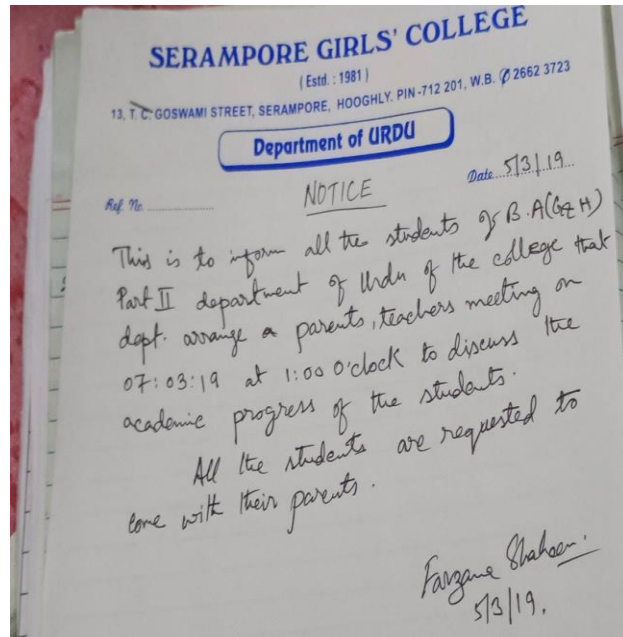 SERAMPORE GIRLS' COLLEGE
( Estd. : 1981 )
13, T. C. GOSWAMI STREET, SERAMPORE, HOOGHLY. PIN-712 201, W.B. ✆ 2662 3723
Department of URDU
Ref. No. ............... Date 5/3/19
NOTICE
This is to inform all the students of B.A(G & H)
Part II department of Urdu of the college that
dept. arrange a parents, teachers meeting on
07:03:19 at 1:00 O'clock to discuss the
academic progress of the students.
All the students are requested to
come with their parents.
Farzana Shaheen.
5/3/19.